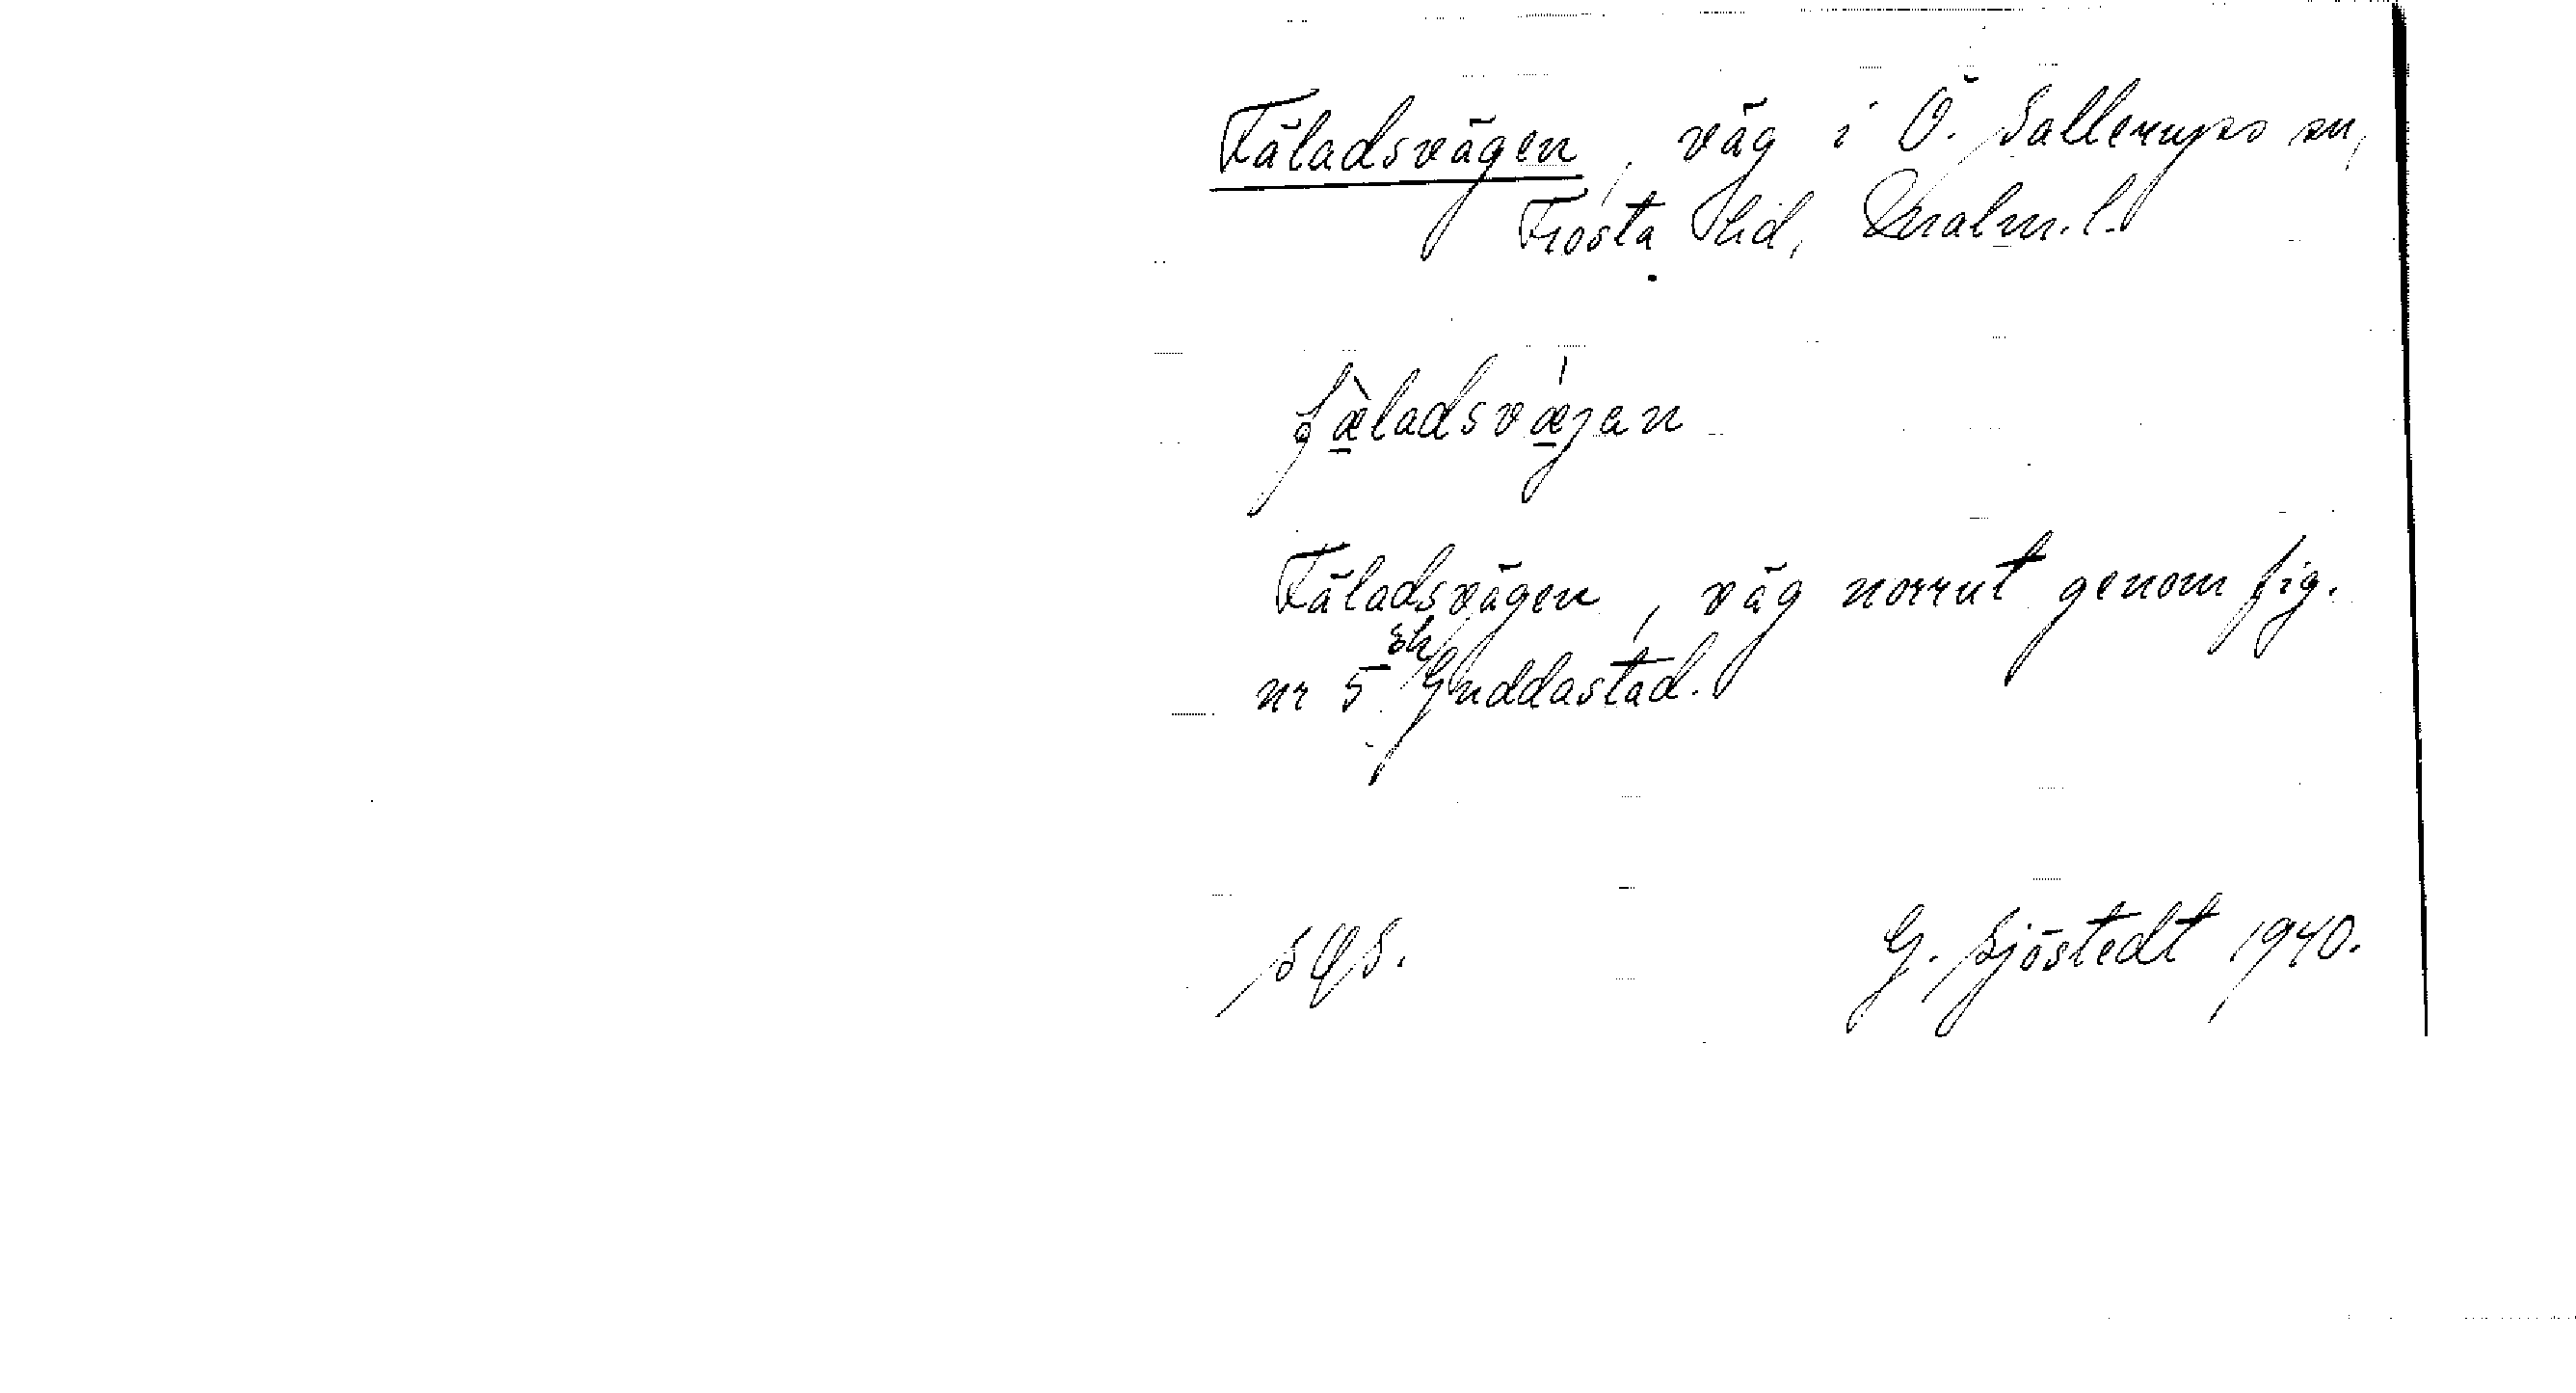 Fäladsvägen, väg i Ö. Sallerups sn,
Frosta hd, Malm. l.
fæ̀ladsvæ̀jan
Fäladsvägen, väg norrut genom fig.
nr 5 sk Guddastad.
G. Sjöstedt 1940.